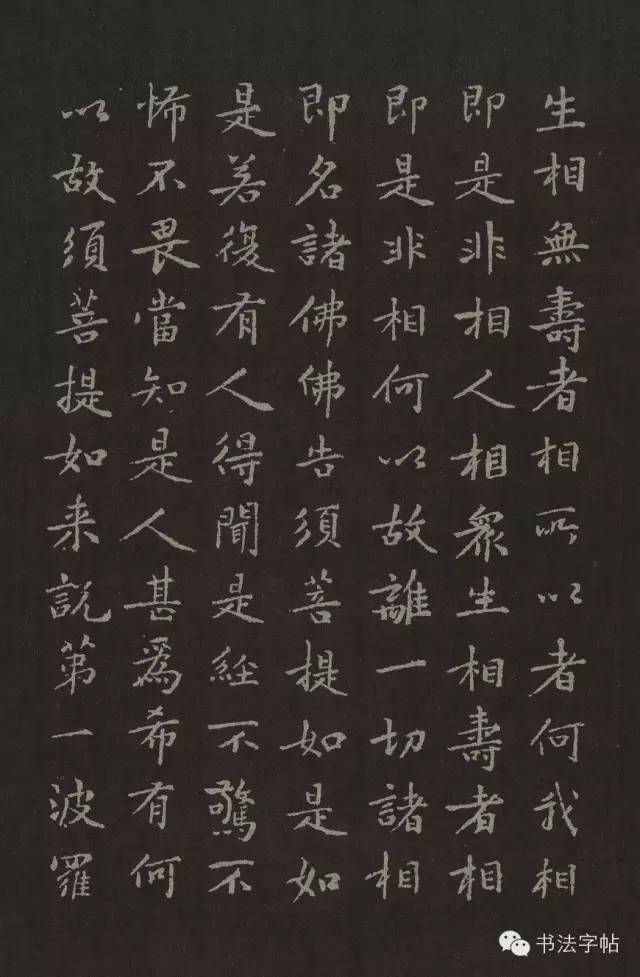 生相無壽者相所以者何我相
即是非相人相衆生相壽者相
即是非相何以故離一切諸相
即名諸佛佛告須菩提如是如
是若復有人得聞是經不驚不
怖不畏當知是人甚爲希有何
以故須菩提如来説第一波羅
书法字帖